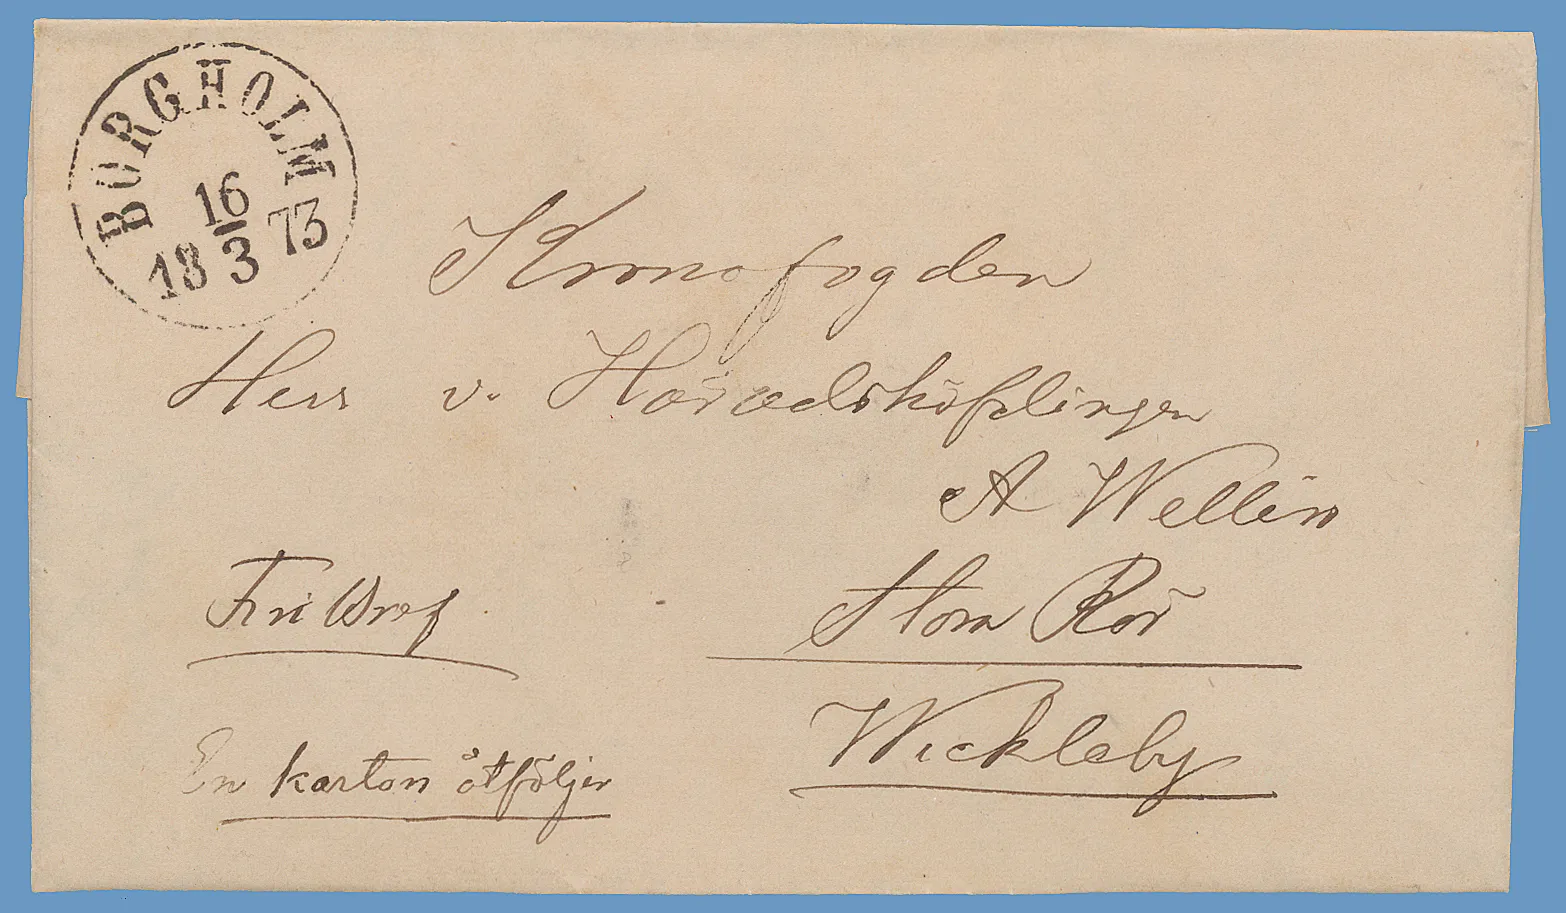 BORGHOLM
16
18 3 73
Kronofogden
Herr v. Häradshöfdingen
A Wellin
Stora Rör
Fri Bref
Wickleby
En karton åtföljer